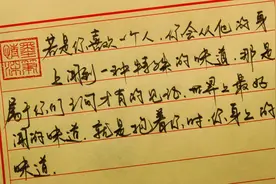 若是你喜欢一个人，你会从他的身
上闻到一种特殊的味道，那是
属于你们之间才有的见证，世界上最好
闻的味道，就是抱着你时，你身上的
味道。